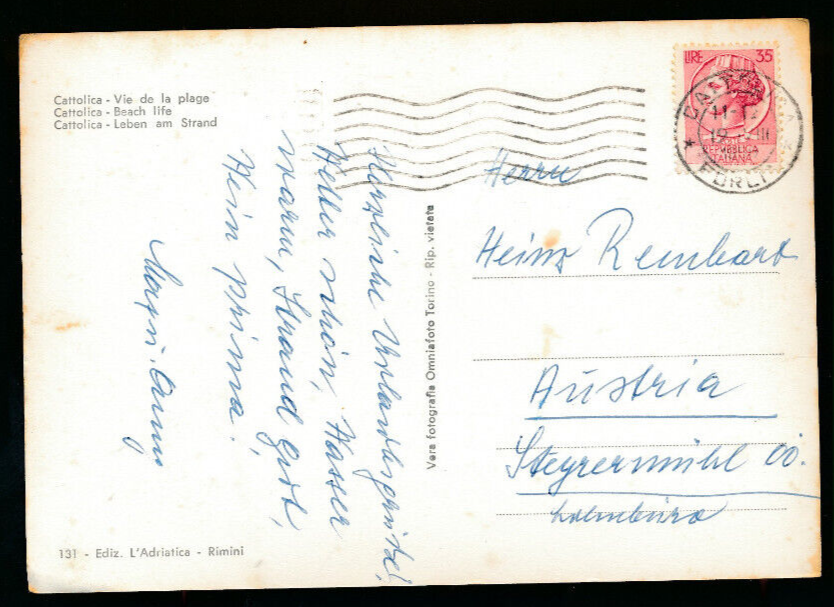 Cattolica - Vie de la plage
Cattolica - Beach life
Cattolica - Leben am Strand
Herzliche Urlaubsgrüße!
Wetter schön, Wasser
warm, Strand gut,
Wein prima!
131 - Ediz. L'Adriatica - Rimini
Vera fotografia Omniafoto Torino - Rip. vietata
LIRE 35
REPVBBLICA
ITALIANA
FORLI
Herrn
Heinz Reinhard
Austria
Steyrermühl OÖ.
Lohnbüro